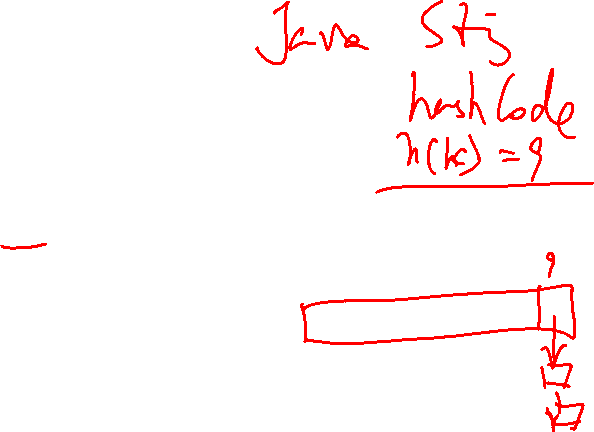 Java Stig
hashCode
h(k) = 9
9